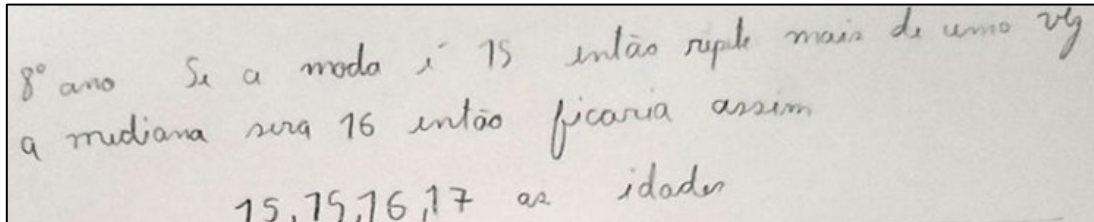 8º ano Se a moda é 15 então repete mais de uma vez
a mediana sera 16 então ficaria assim
15,15,16,17 as idades